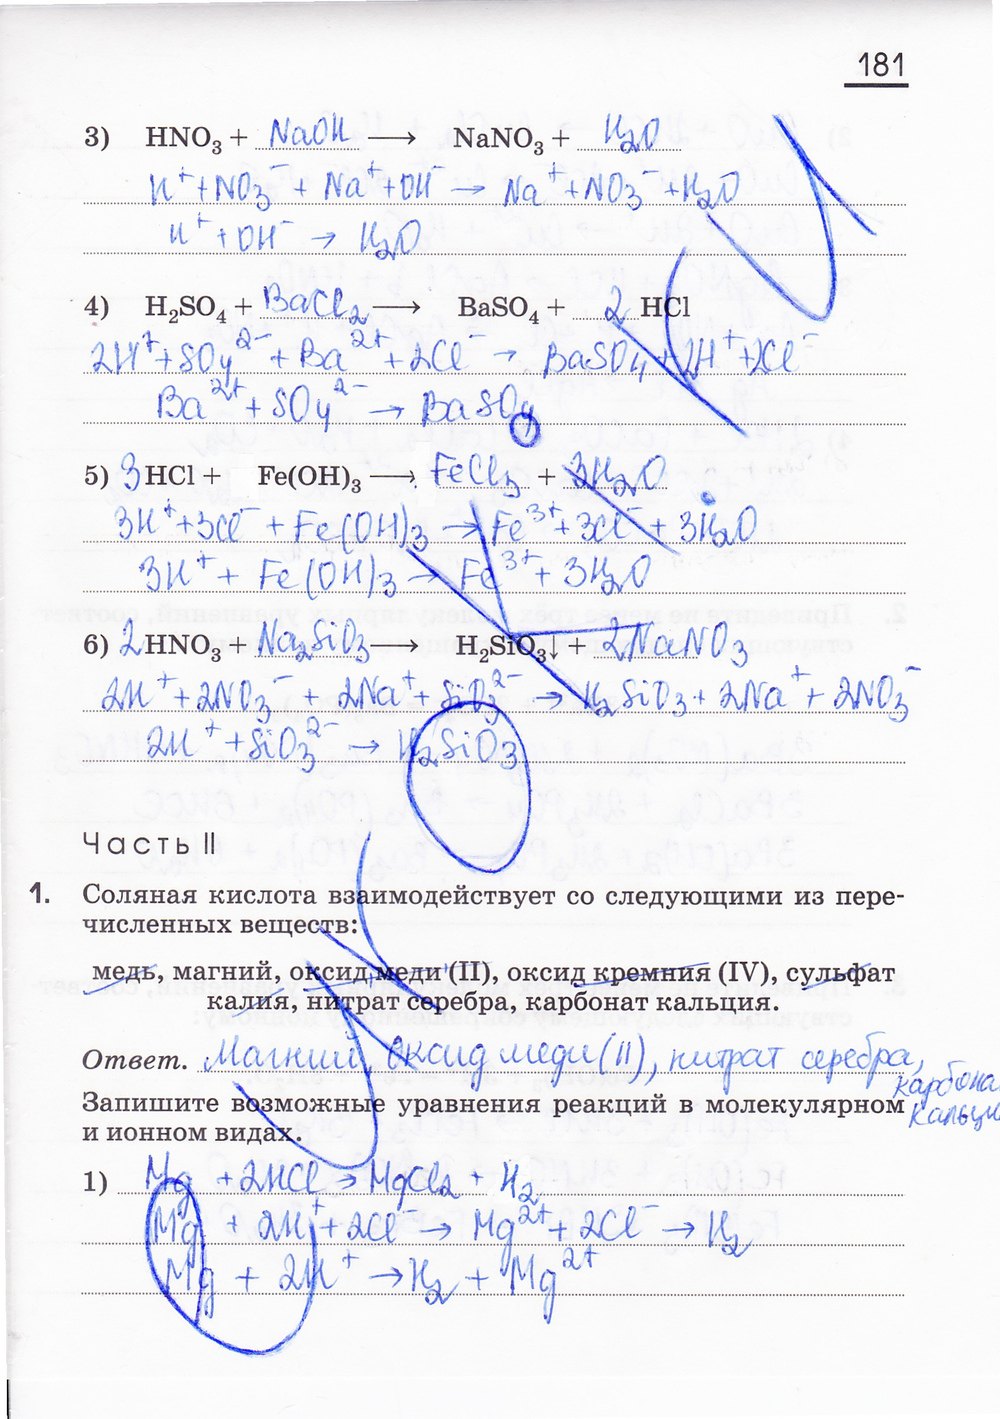 181
3) HNO₃ + NaOH ⟶ NaNO₃ + H₂O
H⁺+NO₃⁻ + Na⁺+OH⁻ → Na⁺+NO₃⁻ +H₂O
H⁺+OH⁻ → H₂O
4) H₂SO₄ + BaCl₂ ⟶ BaSO₄ + 2 HCl
2H⁺+SO₄²⁻ + Ba²⁺ + 2Cl⁻ → BaSO₄ + 2H⁺+2Cl⁻
Ba²⁺ + SO₄²⁻ → BaSO₄
5) 3 HCl + Fe(OH)₃ ⟶ FeCl₃ + 3H₂O
3H⁺+3Cl⁻ + Fe(OH)₃ → Fe³⁺+3Cl⁻ + 3H₂O
3H⁺ + Fe(OH)₃ → Fe³⁺+ 3H₂O
6) 2 HNO₃ + Na₂SiO₃ ⟶ H₂SiO₃↓ + 2NaNO₃
2H⁺+2NO₃⁻ + 2Na⁺+ SiO₃²⁻ → H₂SiO₃ + 2Na⁺ + 2NO₃⁻
2H⁺ +SiO₃²⁻ → H₂SiO₃
Часть II
1. Соляная кислота взаимодействует со следующими из пере-
численных веществ:
медь, магний, оксид меди (II), оксид кремния (IV), сульфат
калия, нитрат серебра, карбонат кальция.
Ответ. Магний, оксид меди (II), нитрат серебра,
Запишите возможные уравнения реакций в молекулярном
и ионном видах.
1) Mg + 2HCl → MgCl₂ + H₂
Mg + 2H⁺+2Cl⁻ → Mg²⁺+ 2Cl⁻ → H₂
Mg + 2H⁺ → H₂ + Mg²⁺